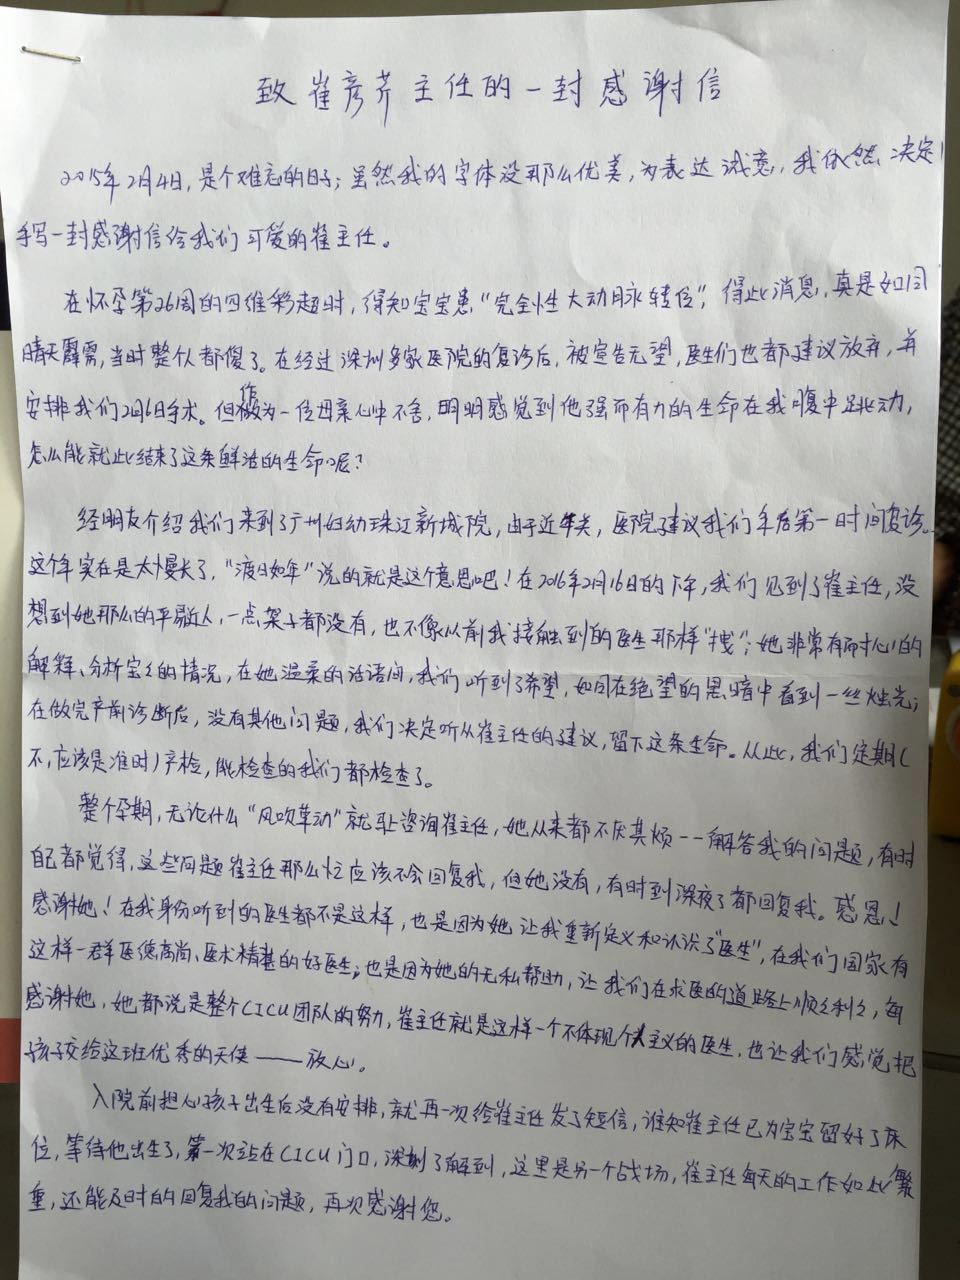 致崔彦芹主任的一封感谢信
2015年2月4日，是个难忘的日子；虽然我的字体没那么优美，为表达诚意，我依然决定
手写一封感谢信给我们可爱的崔主任。
在怀孕第26周的四维彩超时，得知宝宝患“完全性大动脉转位”，得此消息，真是如同
晴天霹雳，当时整个人都傻了。在经过深圳多家医院的复诊后，被宣告无望，医生们也都建议放弃，并
安排我们2月6日手术。但作为一位母亲心中不舍，明明感觉到他强而有力的生命在我腹中跳动，
怎么能就此结束了这条鲜活的生命呢？
经朋友介绍我们来到了广州妇幼珠江新城院，由于近年关，医院建议我们年后第一时间复诊。
这个年实在是太慢长了，“渡日如年”说的就是这个意思吧！在2016年2月16日的下午，我们见到了崔主任，没
想到她那么的平易近人，一点架子都没有，也不像从前我接触到的医生那样“拽”；她非常有耐心的
解释、分析宝宝的情况，在她温柔的话语间，我们听到了希望，如同在绝望的黑暗中看到一丝烛光；
在做完产前诊断后，没有其他问题，我们决定听从崔主任的建议，留下这条生命。从此，我们定期（
不，应该是准时）产检，能检查的我们都检查了。
整个孕期，无论什么“风吹草动”就马上咨询崔主任，她从来都不厌其烦一一解答我的问题，有时
自己都觉得，这些问题崔主任那么忙应该不会回复我，但她没有，有时到深夜了都回复我。感恩！
感谢她！在我身份听到的医生都不是这样，也是因为她让我重新定义和认识了“医生”，在我们国家有
这样一群医德高尚、医术精湛的好医生；也是因为她的无私帮助，让我们在求医的道路上顺顺利利，每
感谢她，她都说是整个CICU团队的努力，崔主任就是这样一个不体现个人主义的医生，也让我们感觉把
孩子交给这班优秀的天使——放心。
入院前担心孩子出生后没有安排，就再一次给崔主任发了短信，谁知崔主任已为宝宝留好了床
位，等待他出生了，第一次站在CICU门口，深刻了解到，这里是另一个战场，崔主任每天的工作如此繁
重，还能及时的回复我的问题，再次感谢您。